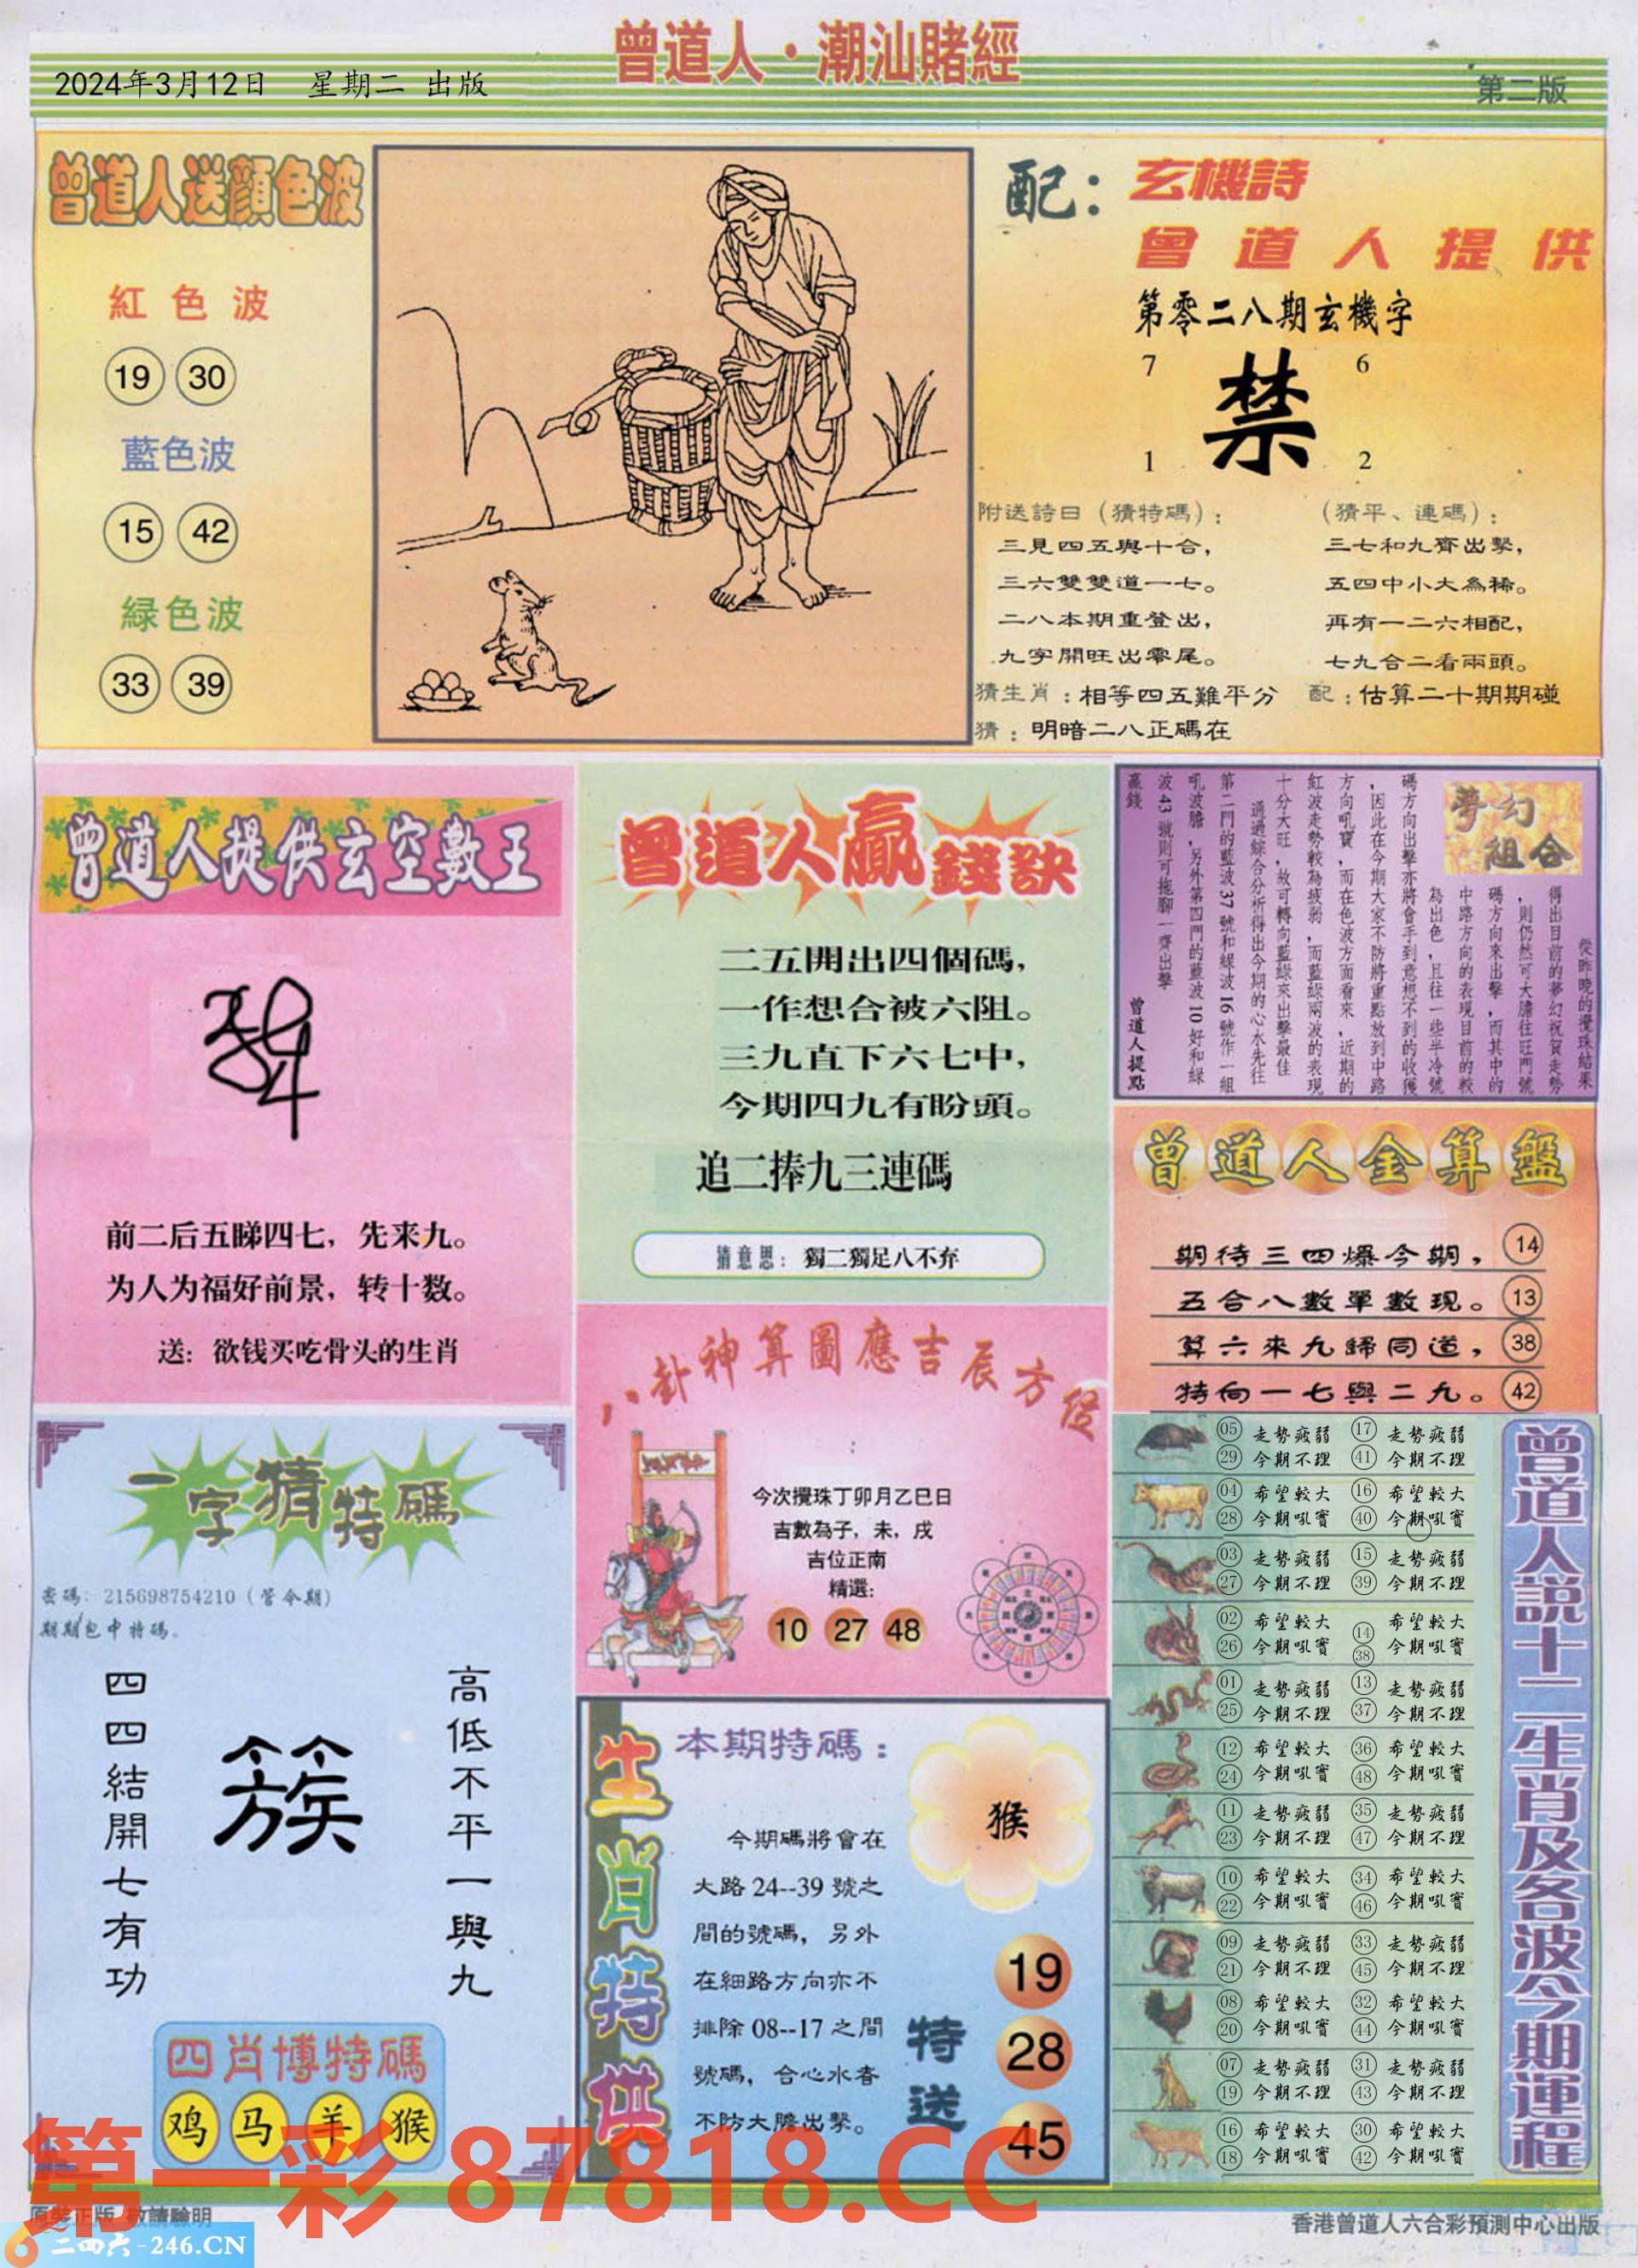 曾道人·潮汕賭經
2024年3月12日 星期二 出版
第二版
曾道人送顏色波
紅色波
19 30
藍色波
15 42
緑色波
33 39
配：
玄機詩
曾道人提供
第零二八期玄機字
7 6
禁
1 2
附送詩日（猜特碼）：
三見四五與十合，
三六雙雙道一七。
二八本期重登出，
九字開旺出零尾。
（猜平、連碼）：
三七和九齊出擊，
五四中小大為稀。
再有一二六相配，
七九合二看兩頭。
猜生肖：相等四五難平分
配：估算二十期期碰
猜：明暗二八正碼在
曾道人提供玄空數王
前二后五睇四七，先来九。
为人为福好前景，转十数。
送：欲钱买吃骨头的生肖
曾道人贏錢訣
二五開出四個碼，
一作想合被六阻。
三九直下六七中，
今期四九有盼頭。
追二捧九三連碼
猜意思：獨二獨足八不弃
夢幻
組合
從昨晚的攪珠結果
得出目前的夢幻祝賀走勢
，則仍然可大膽往旺門號
碼方向來出擊，而其中的
中路方向的表現目前的較
為出色，且往一些半冷號
碼方向出擊亦將會手到意想不到的收獲
，因此在今期大家不防將重點放到中路
方向吼寶，而在色波方面看來，近期的
紅波走勢較為疲弱，而藍綠兩波的表現
十分大旺，故可轉向藍綠來出擊最佳
通過綜合分析得出今期的心水先往
第二門的藍波37號和綠波16號作一組
吼波膽，另外第四門的藍波10好和綠
波43號則可拖腳一齊出擊
贏錢
曾道人提點
曾道人金算盤
期待三四爆今期， 14
五合八數單數現。 13
算六來九歸同道， 38
特向一七與二九。 42
一字猜特碼
密碼：215698754210（管令期）
期期包中特碼。
高低不平一與九
簇
四四結開七有功
四肖博特碼
鸡 马 羊 猴
八卦神算圖應吉辰方位
今次攪珠丁卯月乙巳日
吉數為子，未，戌
吉位正南
精選：
10 27 48
生肖特供
本期特碼：
猴
今期碼將會在
大路24--39號之
間的號碼，另外
在細路方向亦不
排除08--17之間
號碼，合心水者
不防大膽出擊。
特送
19
28
45
曾道人説十二生肖及各波今期運程
05 走勢疲弱 17 走勢疲弱
29 今期不理 41 今期不理
04 希望較大 16 希望較大
28 今期吼實 40 今期吼實
03 走勢疲弱 15 走勢疲弱
27 今期不理 39 今期不理
02 希望較大 14 希望較大
26 今期吼實 38 今期吼實
01 走勢疲弱 13 走勢疲弱
25 今期不理 37 今期不理
12 希望較大 36 希望較大
24 今期吼實 48 今期吼實
11 走勢疲弱 35 走勢疲弱
23 今期不理 47 今期不理
10 希望較大 34 希望較大
22 今期吼實 46 今期吼實
09 走勢疲弱 33 走勢疲弱
21 今期不理 45 今期不理
08 希望較大 32 希望較大
20 今期吼實 44 今期吼實
07 走勢疲弱 31 走勢疲弱
19 今期不理 43 今期不理
16 希望較大 30 希望較大
18 今期吼實 42 今期吼實
第一彩 87818.CC
原裝正版 敬請驗明
二四六-246.CN
香港曾道人六合彩預測中心出版